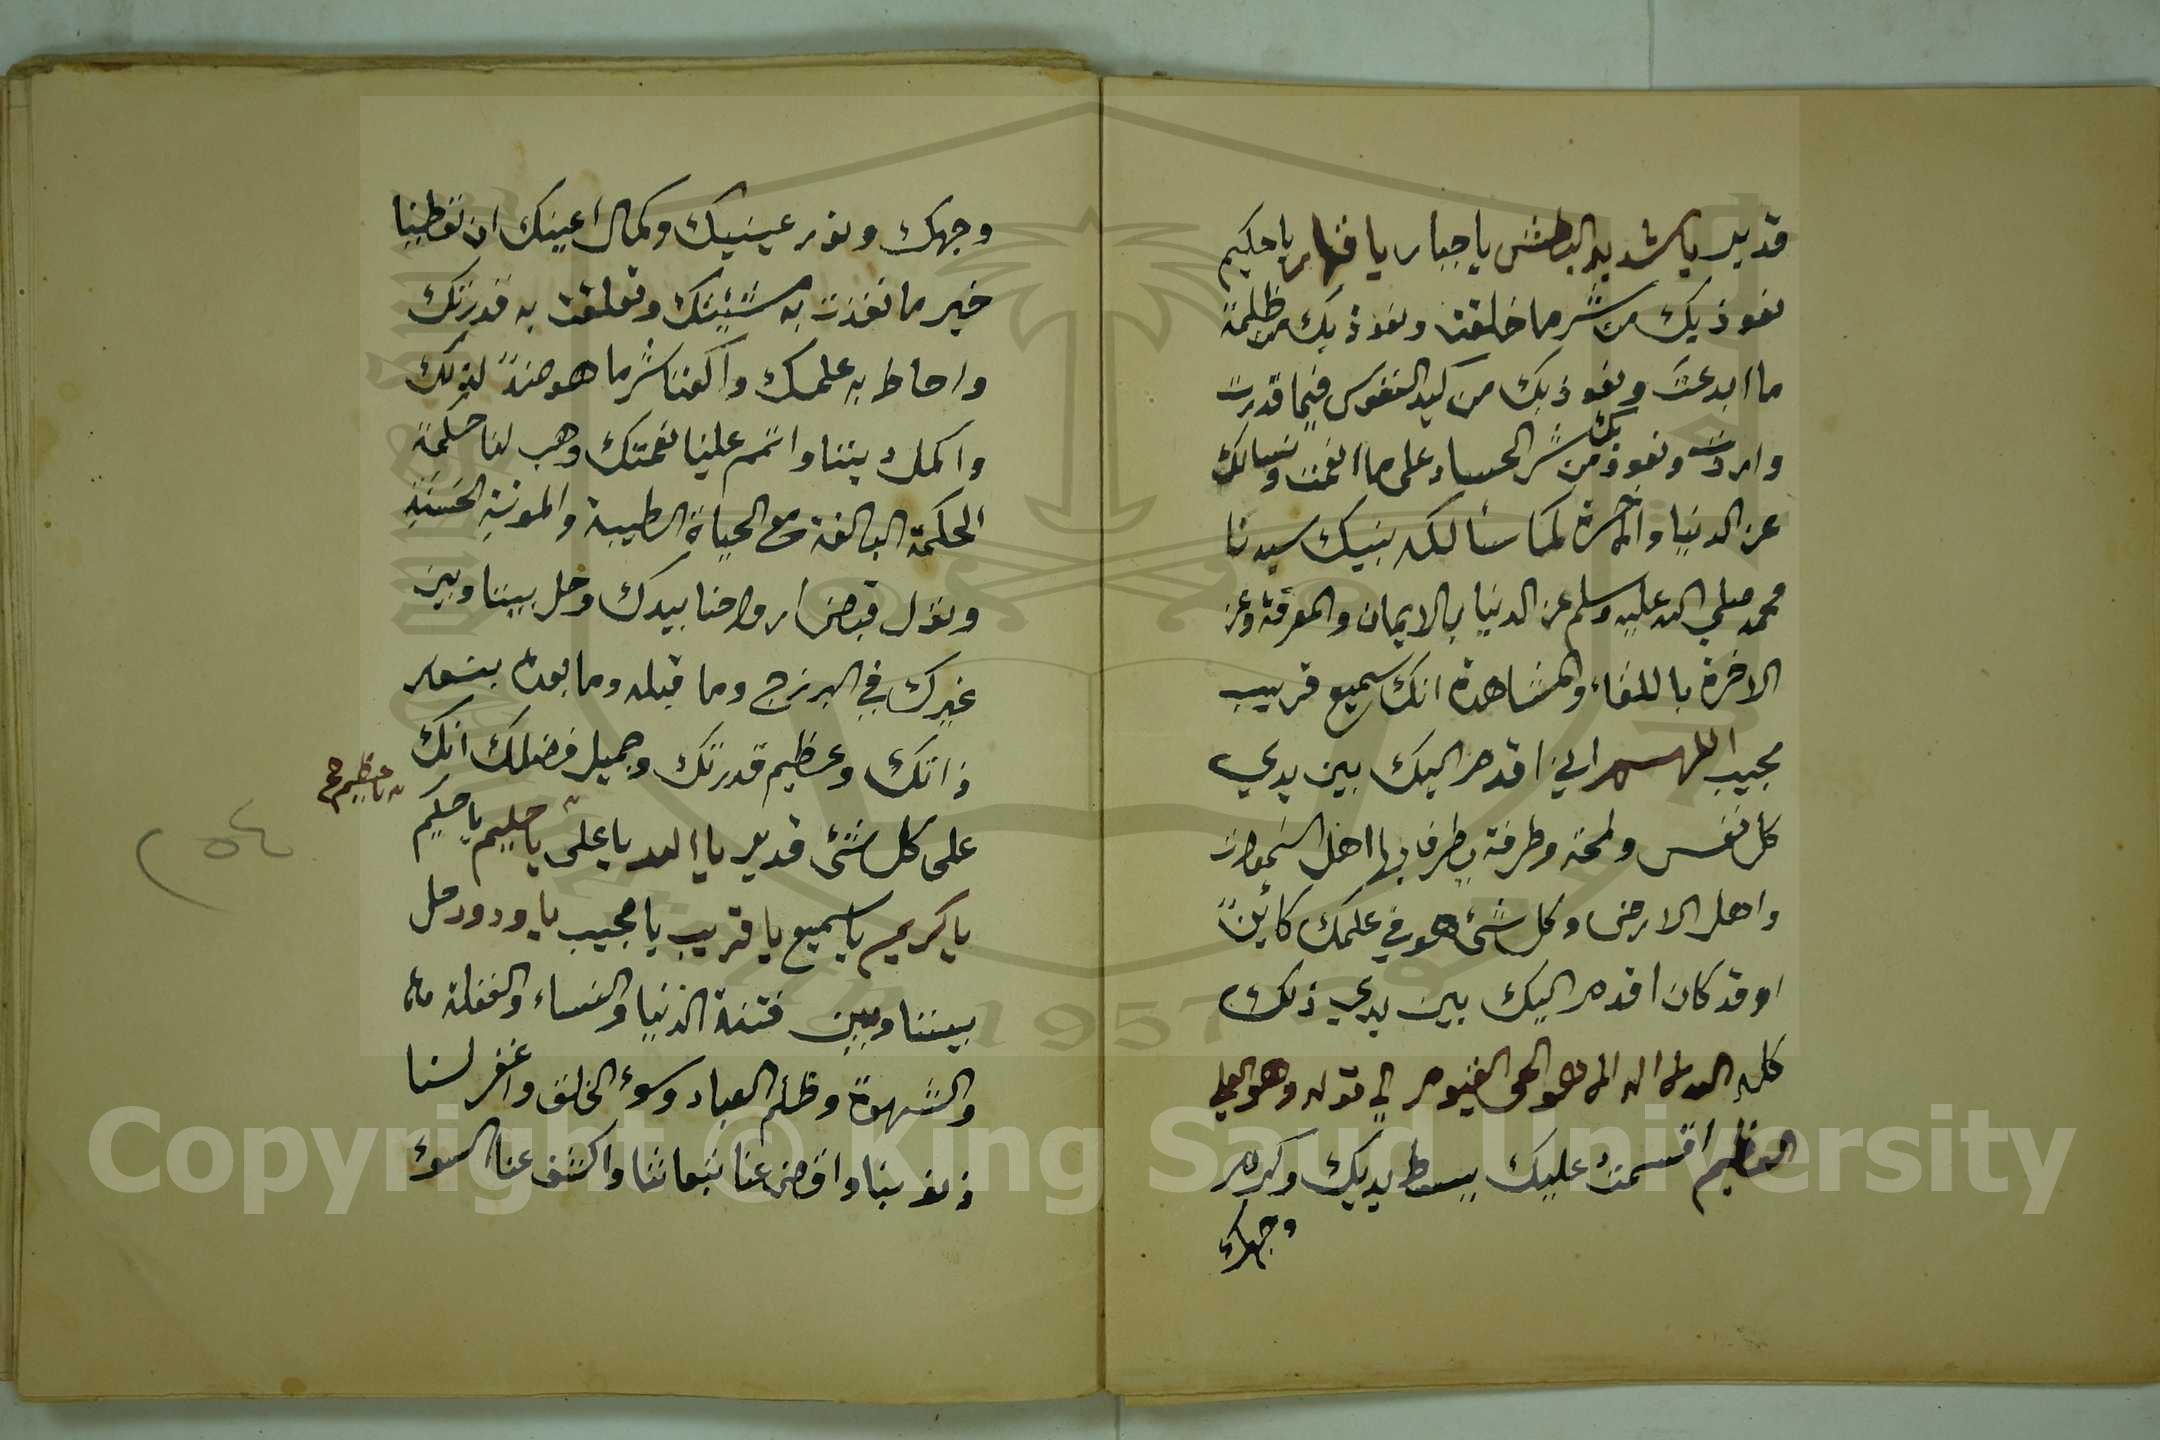 قدير يا شديد البطش يا جبار يا قهار يا حكيم
نعوذ بك من شر ما خلقت ونعوذ بك من ظلمة
ما ابدعت ونعوذ بك من كيد النفوس فيما قدرت
واردت ونعوذ بك من شر الحساد على ما انعمت ونسالك
عز الدنيا والاخرة كما سالكه نبيك سيدنا
محمد صلي الله عليه وسلم عز الدنيا بالايمان والمعرفة وعز
الاخرة باللقاء والمشاهدة انك سميع قريب
مجيب اللهم اني اقدم اليك بين يدي
كل نفس ولمحة وطرفة يطرف بها اهل السموات
واهل الارض وكل شئ هو في علمك كائن
او قد كان اقدم اليك بين يدي ذلك
كله الله لا اله الا هو الحي القيوم الي قوله وهو العلي
العظيم اقسمت عليك ببسط يديك وكرم
وجهك
وجهك ونور عينيك وكمال اعينك ان تعطينا
خير ما نفذت به مشيئتك وتعلقت به قدرتك
واحاط به علمك واكفنا شر ما هو ضد لذلك
واكمل ديننا واتمم علينا نعمتك وهب لنا حكمة
الحكمة البالغة مع الحياة الطيبة والموتة الحسنة
وتول قبض ارواحنا بيدك وحل بيننا وبين
غيرك في البرزخ وما قبله وما بعده بنور
ذاتك وعظيم قدرتك وجميل فضلك انك
على كل شئ قدير يا الله يا علي يا حليم يا حكيم
يا عظيم صح
يا كريم يا سميع يا قريب يا مجيب يا ودود حل
بيننا وبين فتنة الدنيا والنساء والغفلة
والشهوة وظلم العباد وسوء الخلق واغفر لنا
ذنوبنا واقض عنا تبعاتنا واكشف عنا السوء
Copyright © King Saud University
1957